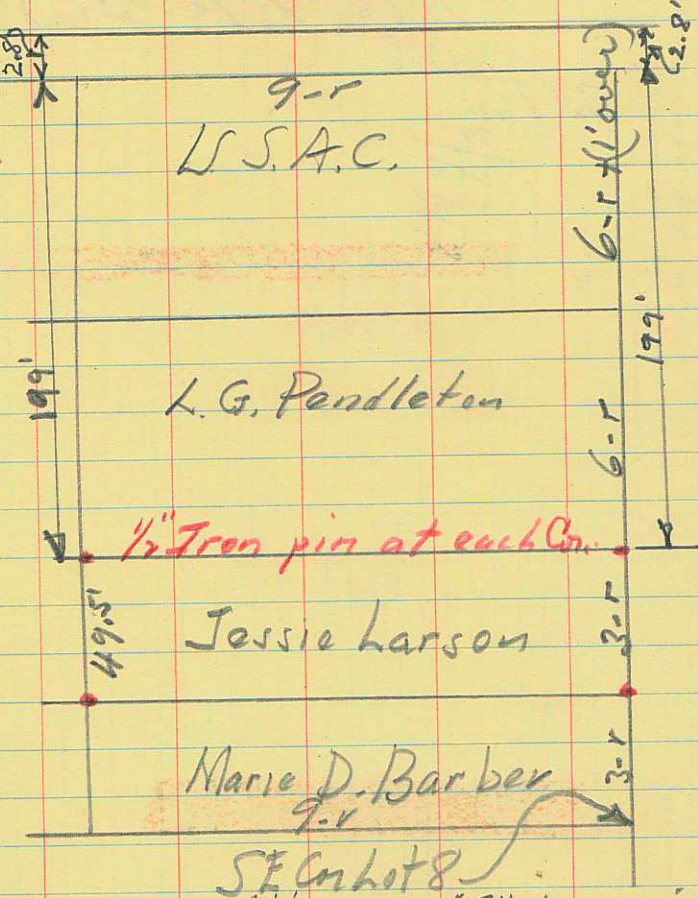 2.8'
2.8'
9-r
U.S.A.C.
6-r + (1' over)
199'
199'
L.G. Pendleton
6-r
1/2" Iron pin at each Cn.
49.5'
Jessie Larson
3-r
Marie D. Barber
3-r
9-r
SE Cn Lot 8